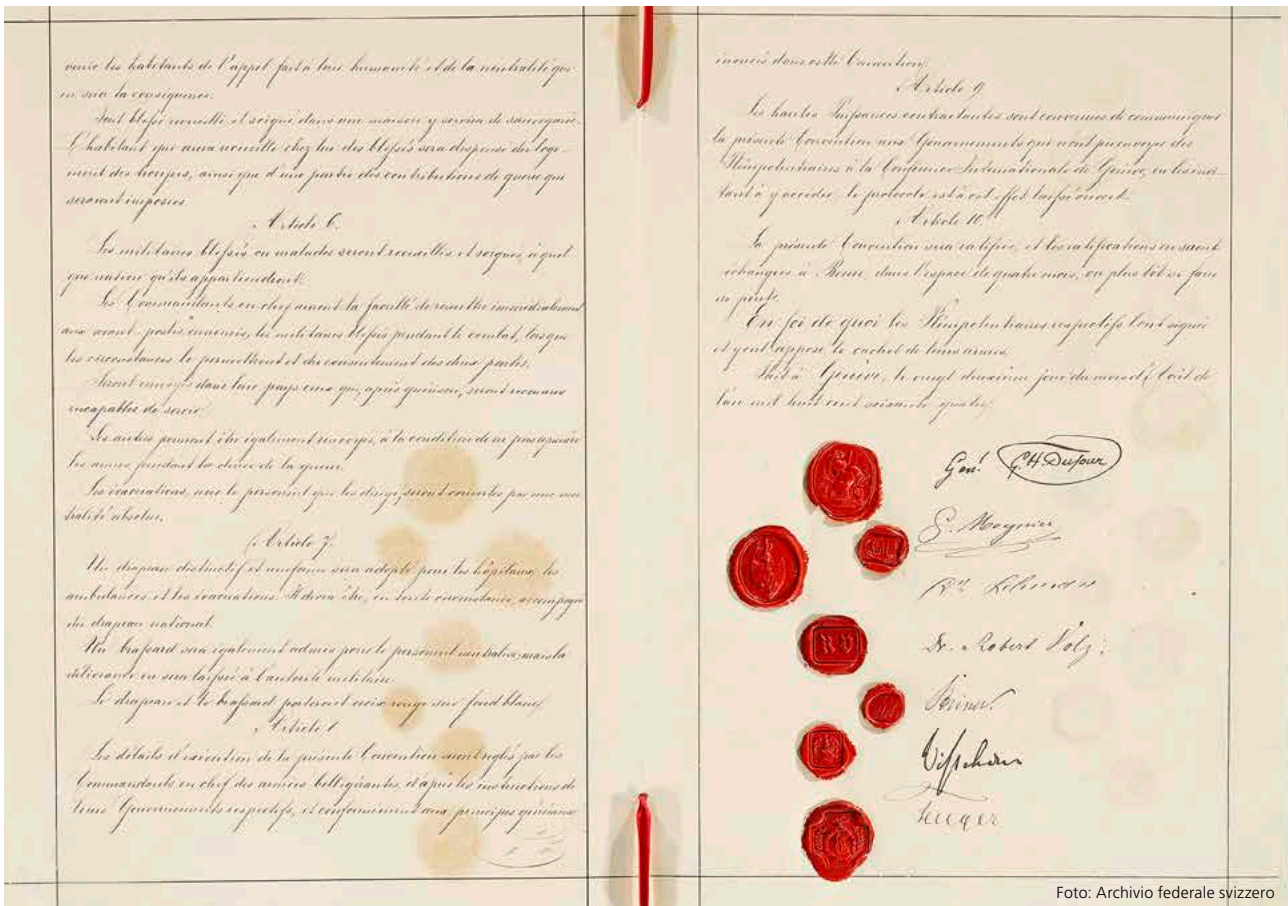 venir les habitants de l'appel fait à leur humanité et de la neutralité qui
en sera la conséquence.
Tout blessé recueilli et soigné dans une maison y servira de sauvegarde.
L'habitant qui aura recueilli chez lui des blessés sera dispensé du loge-
ment des troupes, ainsi que d'une partie des contributions de guerre qui
seraient imposées.
Article 6.
Les militaires blessés ou malades seront recueillis et soignés, à quel-
que nation qu'ils appartiendront.
Les Commandants en chef auront la faculté de remettre immédiatement
aux avant-postes ennemis, les militaires blessés pendant le combat, lorsque
les circonstances le permettront et du consentement des deux partis.
Seront renvoyés dans leur pays ceux qui, après guérison, seront reconnus
incapables de servir.
Les autres pourront être également renvoyés, à la condition de ne pas reprendre
les armes pendant la durée de la guerre.
Les évacuations, avec le personnel qui les dirige, seront couvertes par une neu-
tralité absolue.
Article 7.
Un drapeau distinctif et uniforme sera adopté pour les hôpitaux, les
ambulances et les évacuations. Il devra être, en toute circonstance, accompagné
du drapeau national.
Un brassard sera également admis pour le personnel neutralisé; mais la
délivrance en sera laissée à l'autorité militaire.
Le drapeau et le brassard porteront croix rouge sur fond blanc.
Article 8
Les détails d'exécution de la présente Convention seront réglés par les
Commandants en chef des armées belligérantes, d'après les instructions de
leurs Gouvernements respectifs, et conformément aux principes généraux
énoncés dans cette Convention.
Article 9
Les hautes Puissances contractantes sont convenues de communiquer
la présente Convention aux Gouvernements qui n'ont pu envoyer des
Plénipotentiaires à la Conférence Internationale de Genève, en les invi-
tant à y accéder; le protocole est à cet effet laissé ouvert.
Article 10.
La présente Convention sera ratifiée, et les ratifications en seront
échangées à Berne, dans l'espace de quatre mois, ou plus tôt si faire
se peut.
En foi de quoi les Plénipotentiaires respectifs l'ont signée
et y ont apposé le cachet de leurs armes.
Fait à Genève, le vingt deuxième jour du mois d'Août de
l'an mil huit cent soixante-quatre.
Gén. G.H. Dufour
G. Moynier
Dr. Lehmann
R V
Dr. Robert Volz.
Steiner.
Visschers
Fenger
Foto: Archivio federale svizzero